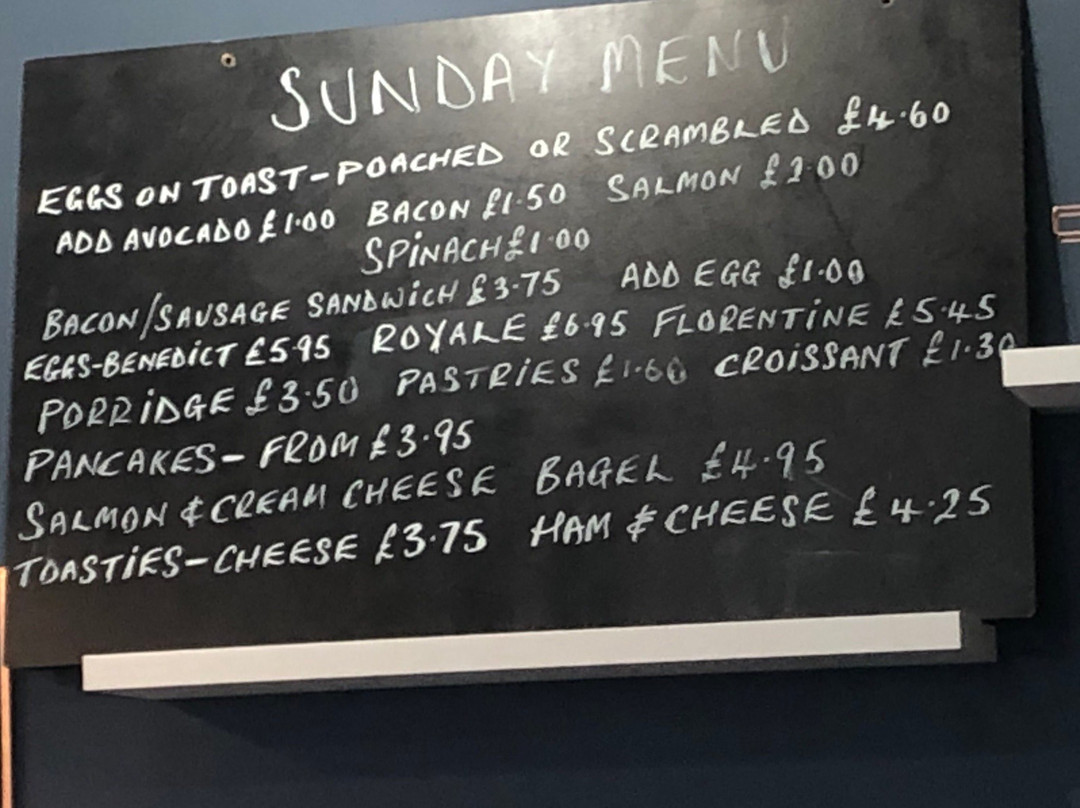 SUNDAY MENU
EGGS ON TOAST-POACHED OR SCRAMBLED £4.60
ADD AVOCADO £1.00 BACON £1.50 SALMON
SPINACH £1.00
BACON/SAUSAGE SANDWICH £3.75 ADD EGG £1.00
EGGS-BENEDICT £5.95 ROYALE £6.95 FLORENTINE £5.45
PORRIDGE £3.50 PASTRIES £1.60 CROISSANT £1.30
PANCAKES- FROM £3.95
SALMON & CREAM CHEESE BAGEL £4.95
TOASTIES-CHEESE £3.75 HAM & CHEESE £4.25